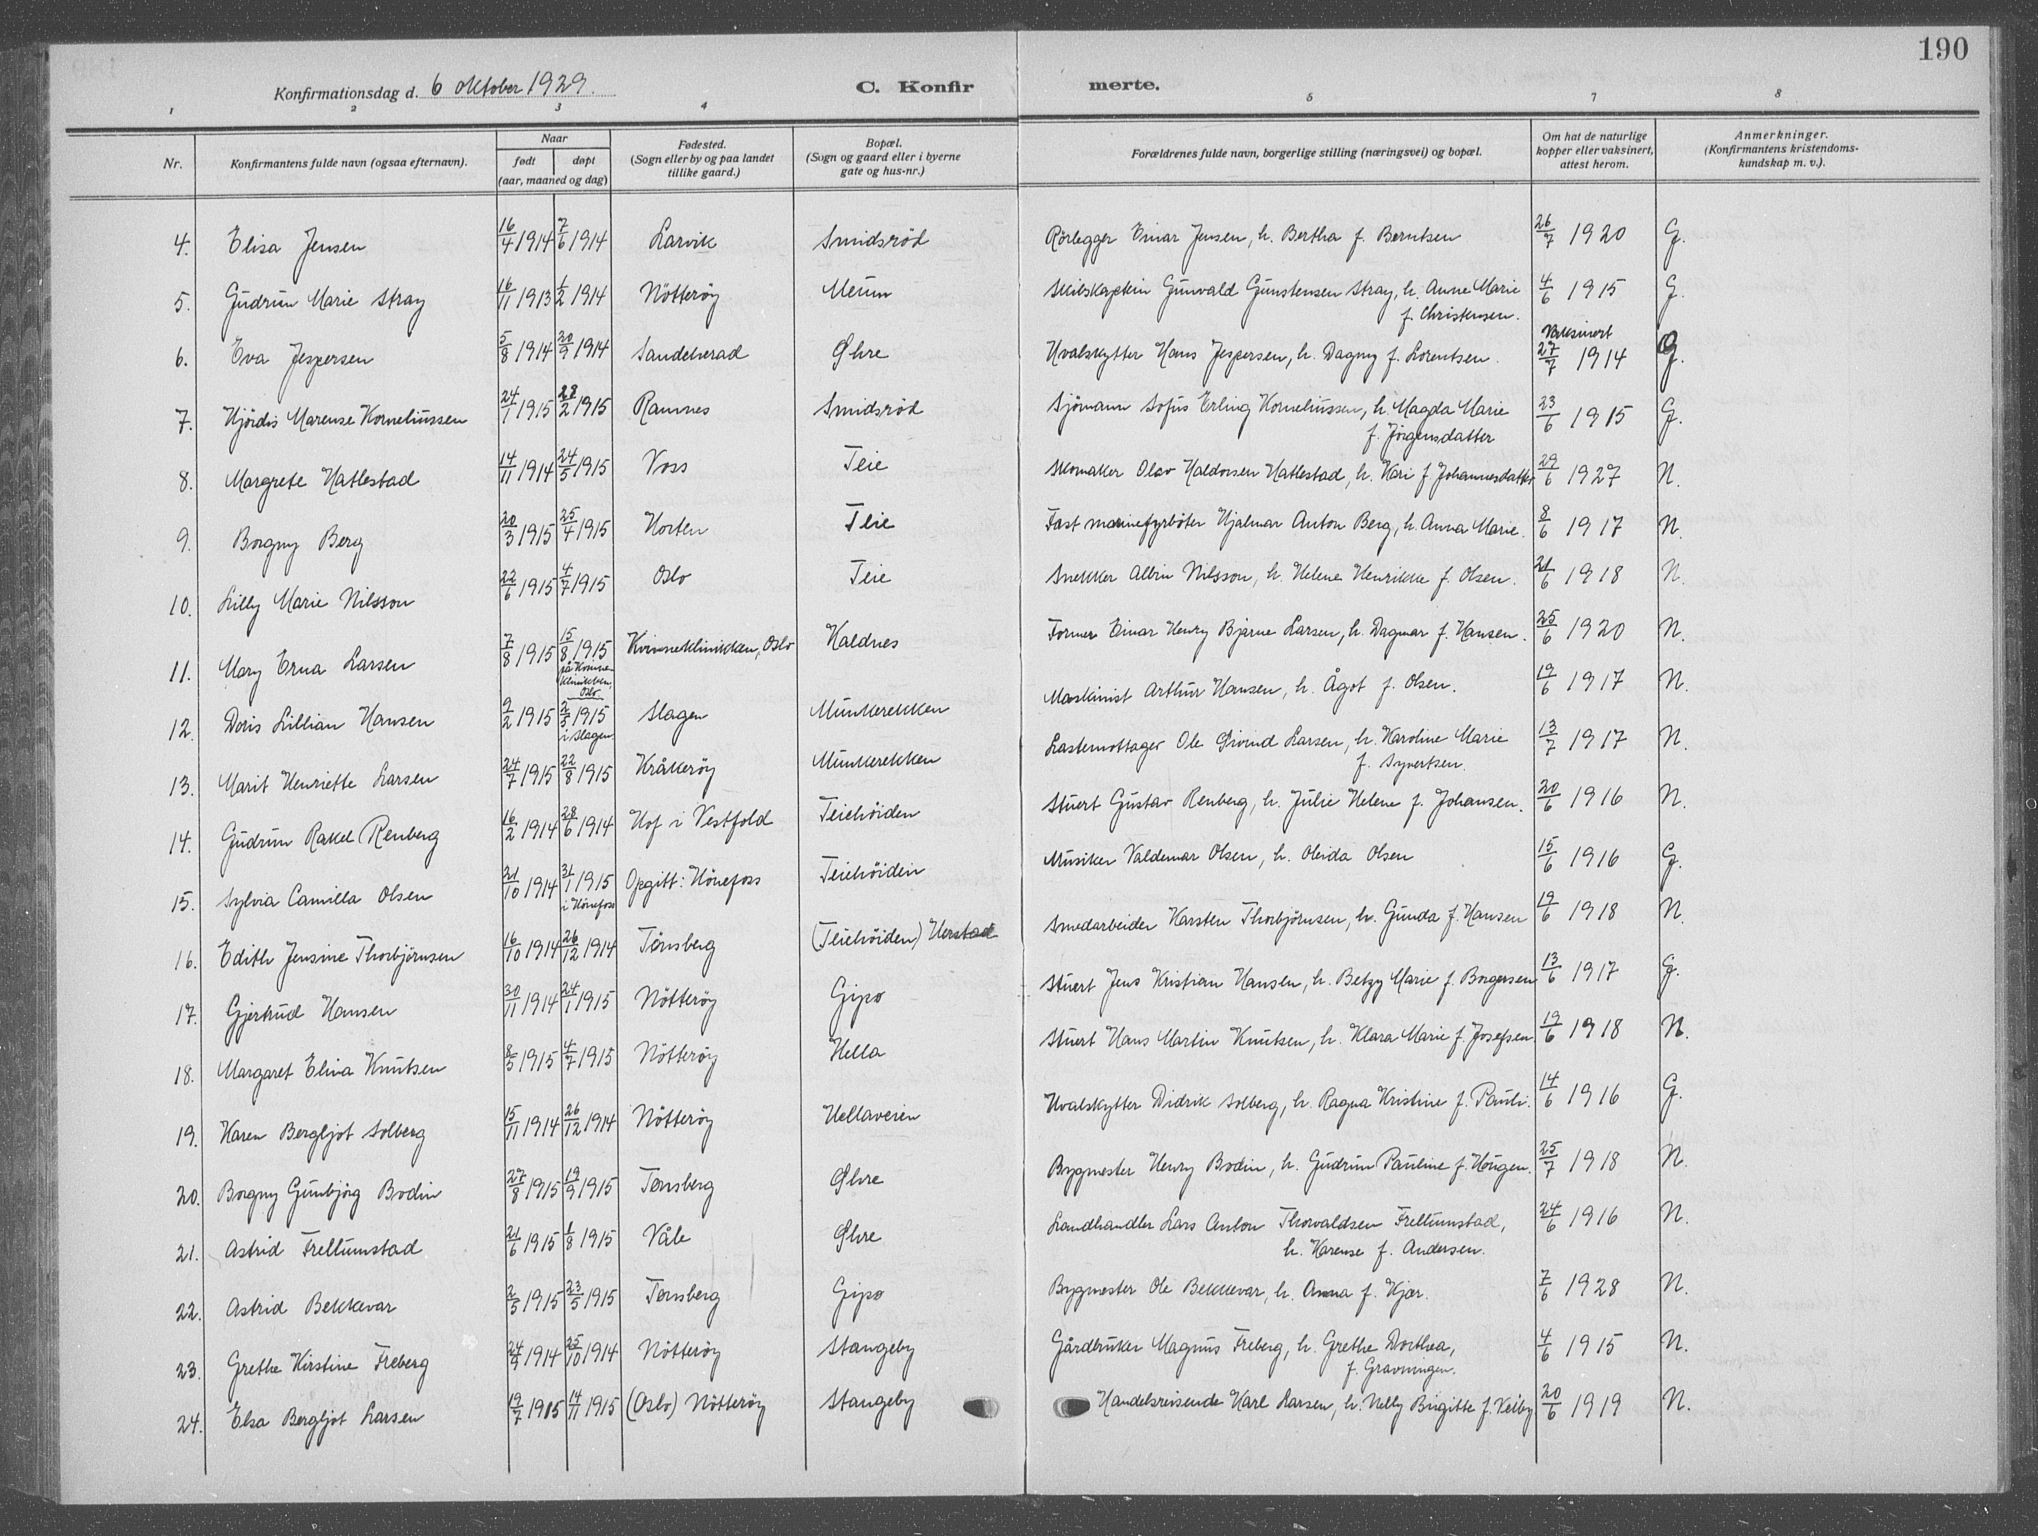 190
Konfirmationsdag d. 6 oktober 1929.
C. Konfirmerte.
1 2 3 4 6 7 8
Nr. Konfirmantens fulde navn (ogsaa efternavn). Naar født døpt (aar, maaned og dag) Fødested. (Sogn eller by og paa landet tillike gaard.) Bopæl. (Sogn og gaard eller i byerne gate og hus-nr.) Forældrenes fulde navn, borgerlige stilling (næringsvei) og bopæl. Om hat de naturlige kopper eller vaksinert, attest herom. Anmerkninger. (Konfirmantens kristendomskundskap m. v.).
4. Elisa Jensen 16/4 1914 7/6 1914 Larvik Smidsrød Rörlegger Einar Jensen, h. Bertha f. Berntsen 26/7 1920 G.
5. Gudrun Marie Stray 16/11 1913 1/2 1914 Nötteröy Meum Skibskaptein Gunvald Gunstensen Stray, h. Anne Marie f. Christensen. 4/6 1915 G.
6. Eva Jespersen 5/8 1914 20/9 1914 Sandeherad Øhre Hvalskytter Hans Jespersen, h. Dagny f. Lorentsen. Vaksinert 27/7 1914 G.
7. Hjördis Marense Korneliussen 24/1 1915 28/2 1915 Ramnes Smidsrød Sjömann Sofus Erling Korneliussen, h. Magda Marie f. Jörgensdatter 23/6 1915 G.
8. Margrete Hatlestad 14/11 1914 24/5 1915 Voss Teie Skomaker Olav Haldorsen Hatlestad, h. Kari f. Johannesdatter 29/6 1927 N.
9. Borgny Berg 20/3 1915 25/4 1915 Horten Teie Fast marinefyrböter Hjalmar Anton Berg, h. Anna Marie. 8/6 1917 N.
10. Lilly Marie Nilsson 22/6 1915 4/7 1915 Oslo Teie Snekker Albin Nilsson, h. Helene Henrikke f. Olsen. 21/6 1918 N.
11. Mary Erna Larsen 7/8 1915 15/8 1915 på Kvinneklinikken, Oslo Kvinneklinikken, Oslo Kaldnes Former Einar Henry Bjarne Larsen, h. Dagmar f. Hansen. 25/6 1920 N.
12. Doris Lillian Hansen 9/2 1915 2/5 1915 i Slagen Slagen Munkerekken Maskinist Arthur Hansen, h. Ågot f. Olsen. 19/6 1917 N.
13. Marit Henriette Larsen 24/7 1915 22/8 1915 Kråkeröy Munkerekken Lastemottager Ole Eivind Larsen, h. Karoline Marie f. Syvertsen. 13/7 1917 N.
14. Gudrun Rakel Renberg 16/2 1914 28/6 1914 Hof i Vestfold Teiehöiden Stuert Gustav Renberg, h. Julie Helene f. Johansen. 20/6 1916 N.
15. Sylvia Camilla Olsen 21/10 1914 31/1 1915 i Hönefoss Opgitt: Hönefoss Teiehöiden Musiker Valdemar Olsen, h. Oleida Olsen 15/6 1916 G.
16. Edith Jensine Thorbjörnsen 16/10 1914 26/12 1914 Tønsberg (Teiehöiden) Herstad Smedarbeider Karsten Thorbjörnsen, h. Gunda f. Hansen 19/6 1918 N.
17. Gjertrud Hansen 30/11 1914 24/1 1915 Nötteröy Gipö Stuert Jens Kristian Hansen, h. Betzy Marie f. Borgersen 13/6 1917 G.
18. Margaret Elina Knutsen 8/5 1915 4/7 1915 Nötteröy Hella Stuert Hans Martin Knutsen, h. Klara Marie f. Josefsen. 19/6 1918 N.
19. Karen Bergljot Solberg 15/11 1914 26/12 1914 Nötteröy Hellaveien Hvalskytter Didrik Solberg, h. Ragna Kristine f. Pauli. 14/6 1916 G.
20. Borgny Gunbjörg Bodin 27/8 1915 19/9 1915 Tønsberg Øhre Bygmester Henry Bodin, h. Gudrun Pauline f. Hougen. 25/7 1918 N.
21. Astrid Frellumstad 21/6 1915 1/8 1915 Våle Øhre Landhandler Lars Anton Thorvaldsen Frellumstad, h. Karense f. Andersen. 24/6 1916 N.
22. Astrid Bekkevar 2/5 1915 23/5 1915 Tønsberg Gipö Bygmester Ole Bekkevar, h. Anna f. Kjær. 7/6 1928 N.
23. Grethe Kirstine Freberg 24/9 1914 25/10 1914 Nötteröy Stangeby Gårdbruker Magnus Freberg, h. Grethe Dorthea, f. Gravningen. 4/6 1915 N.
24. Elsa Bergljot Larsen 19/7 1915 14/11 1915 (Oslo) Nötteröy Stangeby Handelsreisende Karl Larsen, h. Nelly Birgitte f. Veiby 20/6 1919 N.